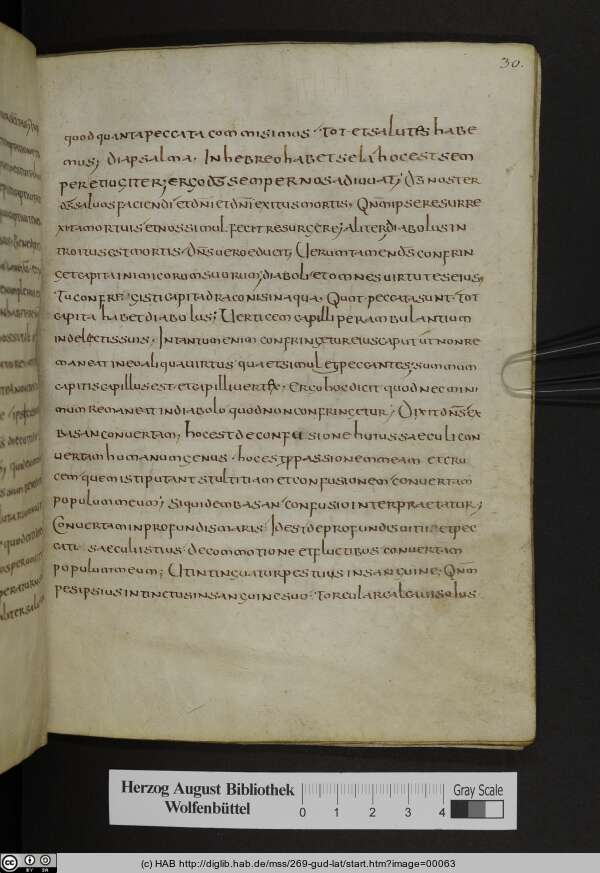 30.
quod quanta peccata commisimus · tot et salutes habe
mus; diapsalma · In hebreo habet sela hoc est sem
per et iugiter; ergo ds̄ semper nos adiuuat; Ds̄ noster
ds̄ saluos faciendi et dn̄i et dn̄i exitus mortis, Qnm̄ ipse resurre
xit a mortuis et nos simul fecit resurgere; aliter diabolus in
troitus est mortis, dn̄s uero educit; Uerumtamen ds̄ confrin
get capita inimicorum suorum; diaboli et omnes uirtutes eius,
Tu confregisti capita draconis in aqua · Quot peccata sunt · tot
capita habet diabolus; Uerticem capilli perambulantium
in delictis suis, In tantum enim confringetur eius caput ut non re
maneat in eo aliqua uirtus quae simul et peccantes; summum
capitis capillus est et capilli uertex, Ergo hoc dicit quod nec mini
mum remaneat in diabolo quod non confringetur, Dixit dn̄s ex
basan conuertam, hoc est de confusione huius saeculi con
uertam humanum genus · hoc est p passionem meam et cru
cem quem isti putant stultitiam et confusionem conuertam
populum meum; siquidem basan confusio interpraetatur;
Conuertam in profundis maris · Id est de profundis uitiis et pec
catis saeculi istius · de commotione et fluctibus conuertam
populum meum; Ut intinguatur pes tuus in sanguine, Qnm̄
pes ipsius intinctus in sanguine suo · Torcular calcaui solus
Herzog August Bibliothek
Wolfenbüttel
0 1 2 3 4
Gray Scale
(c) HAB http://diglib.hab.de/mss/269-gud-lat/start.htm?image=00063